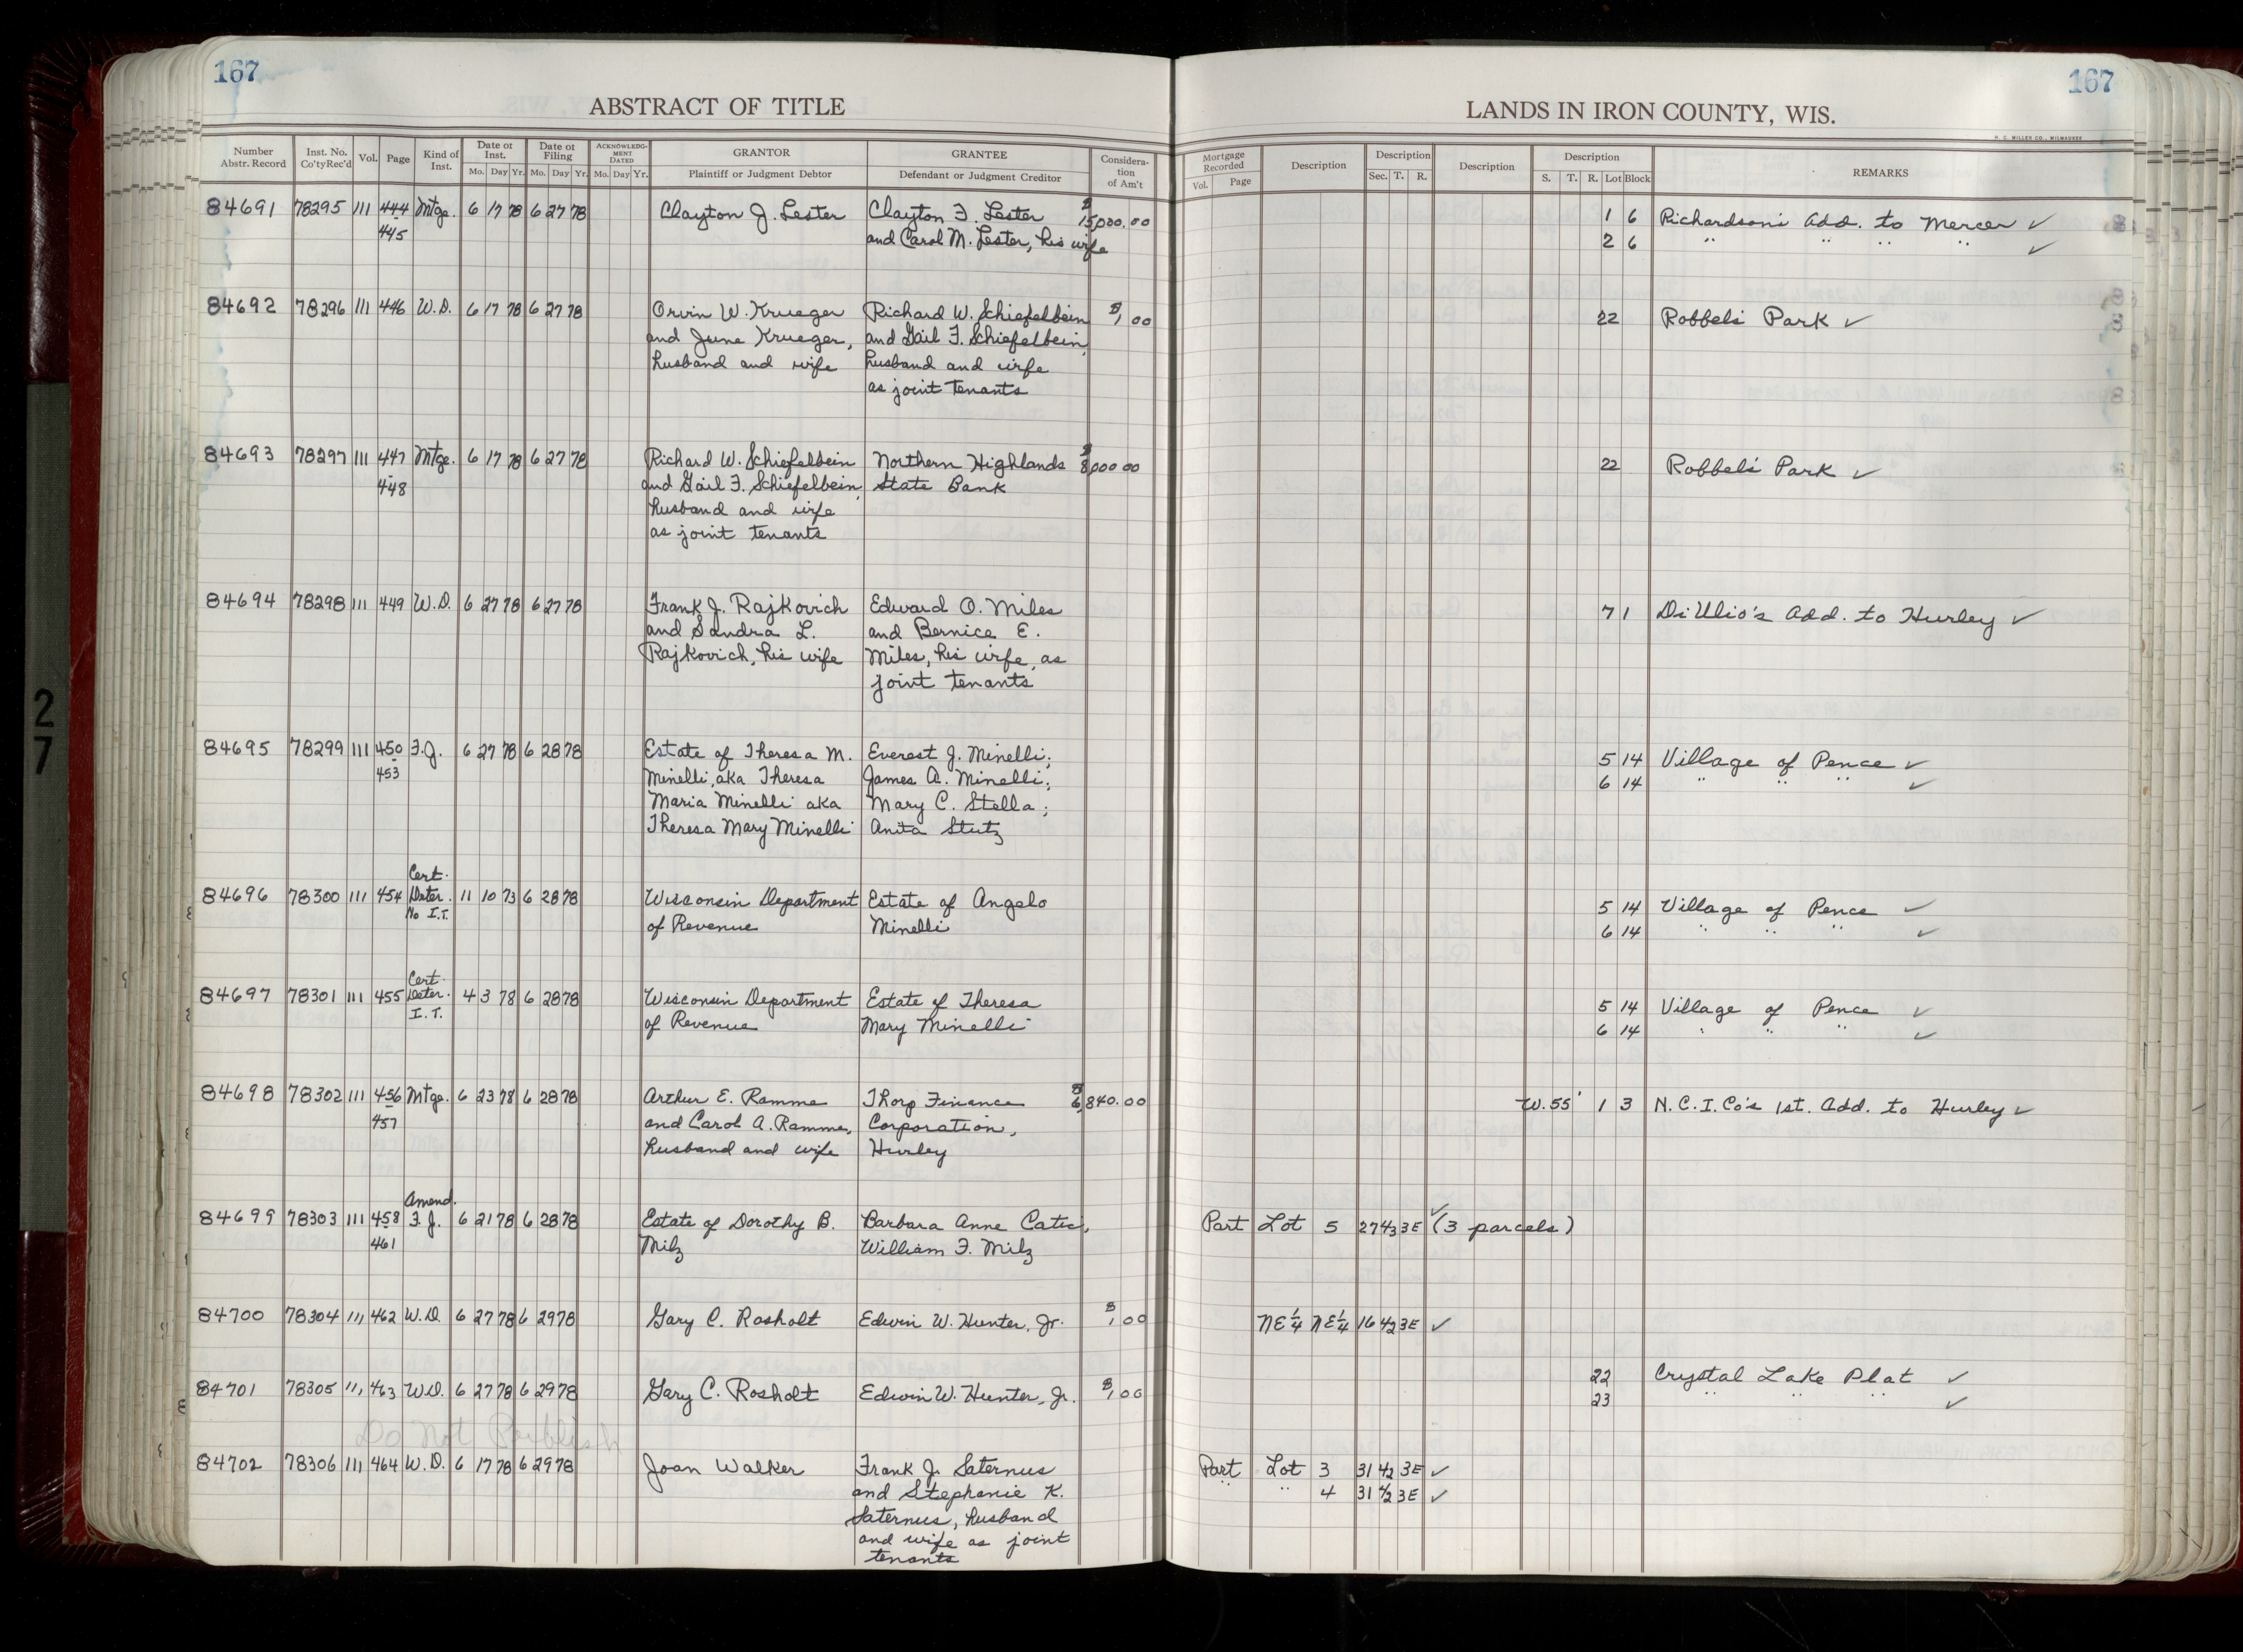 167
167
ABSTRACT OF TITLE
LANDS IN IRON COUNTY, WIS.
H. C. MILLER CO., MILWAUKEE
Number Abstr. Record Inst. No. Co'tyRec'd Vol. Page Kind of Inst. Date of Inst. Mo. Day Yr. Date of Filing Mo. Day Yr. ACKNOWLEDGMENT DATED Mo. Day Yr. GRANTOR Plaintiff or Judgment Debtor GRANTEE Defendant or Judgment Creditor Consideration of Am't
Mortgage Recorded Vol. Page Description Description Sec. T. R. Description Description S. T. R. Lot Block REMARKS
84691 78295 111 444 Mtge. 6 17 78 6 27 78 Clayton J. Lester Clayton F. Lester $15,000.00 1 6 Richardson's Add. to Mercer ✓
445 and Carol M. Lester, his wife 2 6 " " " " ✓
84692 78296 111 446 W.D. 6 17 78 6 27 78 Orvin W. Krueger Richard W. Schiefelbein $1.00 22 Robbel's Park ✓
and June Krueger, and Gail F. Schiefelbein,
husband and wife husband and wife
as joint tenants
84693 78297 111 447 Mtge. 6 17 78 6 27 78 Richard W. Schiefelbein Northern Highlands $8,000 00 22 Robbel's Park ✓
448 and Gail F. Schiefelbein, State Bank
husband and wife
as joint tenants
84694 78298 111 449 W.D. 6 27 78 6 27 78 Frank J. Rajkovich Edward O. Miles 7 1 DiUlio's Add. to Hurley ✓
and Sandra L. and Bernice E.
Rajkovich, his wife Miles, his wife, as
joint tenants
84695 78299 111 450 F.J. 6 27 78 6 28 78 Estate of Theresa M. Everest J. Minelli; 5 14 Village of Pence ✓
453 Minelli, aka Theresa James A. Minelli; 6 14 " " " ✓
Maria Minelli aka Mary C. Stella;
Theresa Mary Minelli Anita Stutz
Cert.
84696 78300 111 454 Deter. 11 10 73 6 28 78 Wisconsin Department Estate of Angelo 5 14 Village of Pence ✓
No I.T. of Revenue Minelli 6 14 " " " ✓
Cert.
84697 78301 111 455 Deter. 4 3 78 6 28 78 Wisconsin Department Estate of Theresa 5 14 Village of Pence ✓
I.T. of Revenue Mary Minelli 6 14 " " " ✓
84698 78302 111 456 Mtge. 6 23 78 6 28 78 Arthur E. Ramme Thorp Finance $6,840.00 W. 55' 1 3 N.C.I.Co's 1st. Add. to Hurley ✓
457 and Carol A. Ramme, Corporation,
husband and wife Hurley
Amend.
84699 78303 111 458 F.J. 6 21 78 6 28 78 Estate of Dorothy B. Barbara Anne Part Lot 5 27 43 3E ✓ (3 parcels)
461 Milz William F. Milz
84700 78304 111 462 W.D. 6 27 78 6 29 78 Gary C. Rosholt Edwin W. Hunter, Jr. $1.00 NE¼ NE¼ 16 42 3E ✓
84701 78305 111 463 W.D. 6 27 78 6 29 78 Gary C. Rosholt Edwin W. Hunter, Jr. $1.00 22 Crystal Lake Plat ✓
23 " " " ✓
Do Not Publish
84702 78306 111 464 W.D. 6 17 78 6 29 78 Joan Walker Frank J. Saternus Part Lot 3 31 42 3E ✓
and Stephanie K. " " 4 31 42 3E ✓
Saternus, husband
and wife as joint
tenants
27